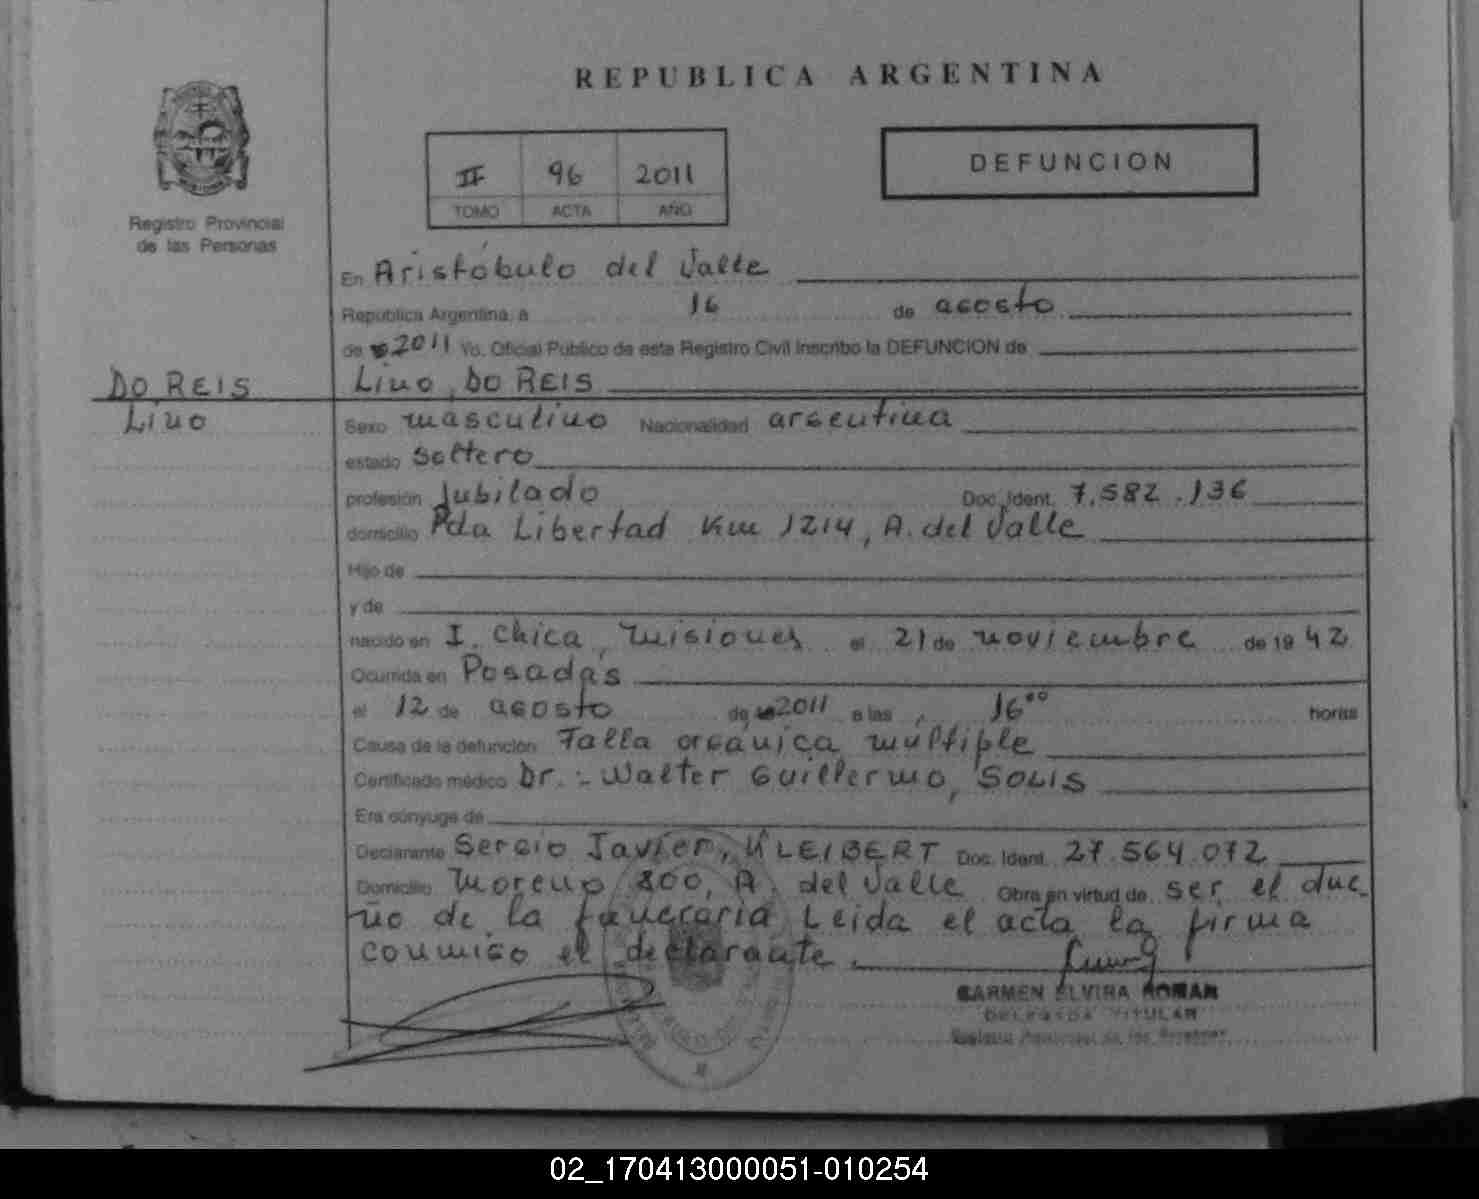 REPUBLICA ARGENTINA
II 96 2011
TOMO ACTA AÑO
DEFUNCION
Registro Provincial
de las Personas
En Aristóbulo del Valle
Republica Argentina, a 16 de agosto
de 2011 Yo. Oficial Público de este Registro Civil inscribo la DEFUNCION de
DO REIS
Lino
Lino, DO REIS
Sexo masculino Nacionalidad argentina
estado soltero
profesión Jubilado Doc. Ident. 7.582.136
domicilio Pda Libertad Km 1214, A. del Valle
Hijo de
y de
nacido en I. Chica, Misiones el 21 de noviembre de 19 42
Ocurrida en Posadas
el 12 de agosto de 2011 a las 16⁰⁰ horas
Causa de la defunción Falla orgánica multiple
Certificado médico Dr.: Walter Guillermo, SOLIS
Era cónyuge de
Declarante Sergio Javier, KLEIBERT Doc. Ident. 27.564.072
Domicilio Moreno 800, A. del Valle Obra en virtud de ser el due
ño de la funeraria Leida el acta la firma
conmigo el declarante.
CARMEN ELVIRA ROMAN
DELEGADA TITULAR
Registro Provincial de las Personas
02_170413000051-010254